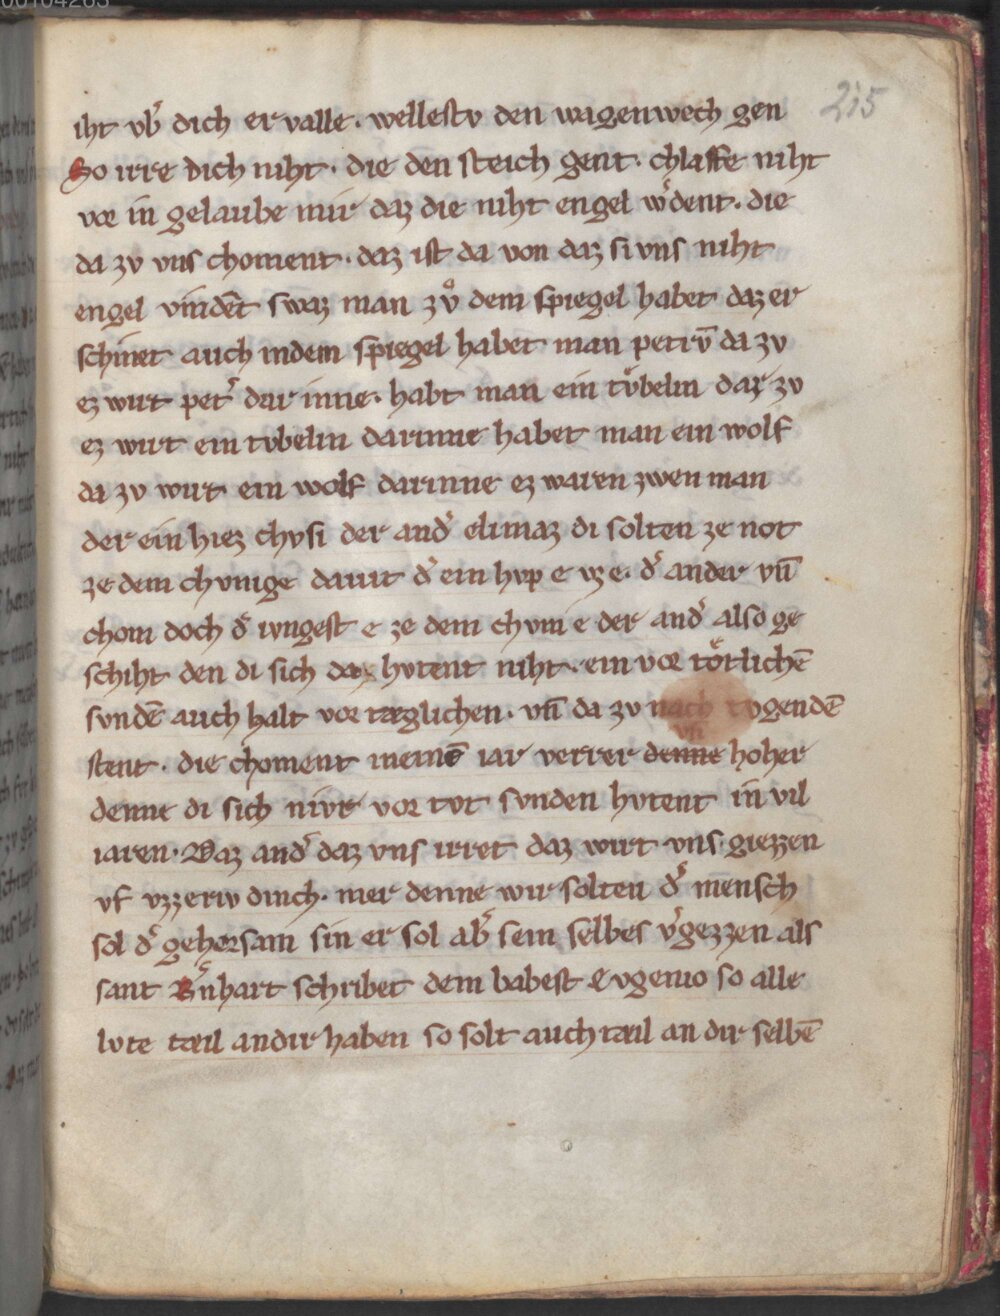 215
iht vb̾ dich er valle. wellestv den wagenwech gen
So irre dich niht. die den steich gent. chlaffe niht
vor in gelaube mir daz die niht engel w̾dent. die
da zv vns choment. daz ist da von daz si vns niht
engel vindēt swaz man zvͦ dem spiegel habet daz er
schinet auch indem spiegel habet man petrv̄ da zv
ez wirt pet̾ dar inne. habt man ein tvͤbelin dar zv
ez wirt ein tvbelin darinne habet man ein wolf
da zv wirt ein wolf darinne ez waren zwen man
der ein hiez chvsi der and̾ elimaz di solten ze not
ze dem chvnige dauit d̾ ein hvp e vz e. d̾ ander vn̄
chom doch d̾ ivngest e ze dem chvni e der and̾ also ge
schiht den di sich da hvtent niht. ein vor toͤtlichē
svndē auch halt vor tæglichen. vn̄ da zv nach tvgendē
vn̄
stent. die choment meinē iar verrer denne hoher
denne di sich nivr vor tot svnden hvtent in vil
iaren. Daz and̾ daz vns irret daz wirt vns giezzen
vf vzzeriv dinch. mer denne wir solten d̾ mensch
sol d̾ gehorsam sin er sol ab̾ sein selbes v̾gezzen als
sant B̾nhart schribet dem babest evgenio so alle
lvte tæil andir haben so solt auch tæil an dir selbē